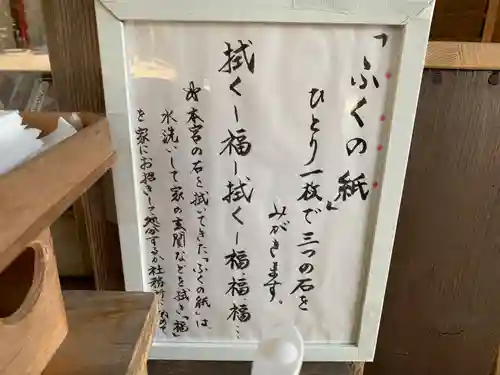 「ふくの紙」
ひとり一枚で三つの石を
みがきます。
拭く―福―拭く―福・福・福…
本宮の石を拭いてきた「ふくの紙」は、
水洗いして家の玄関などを拭き「福」
を家にお招きし
社務所